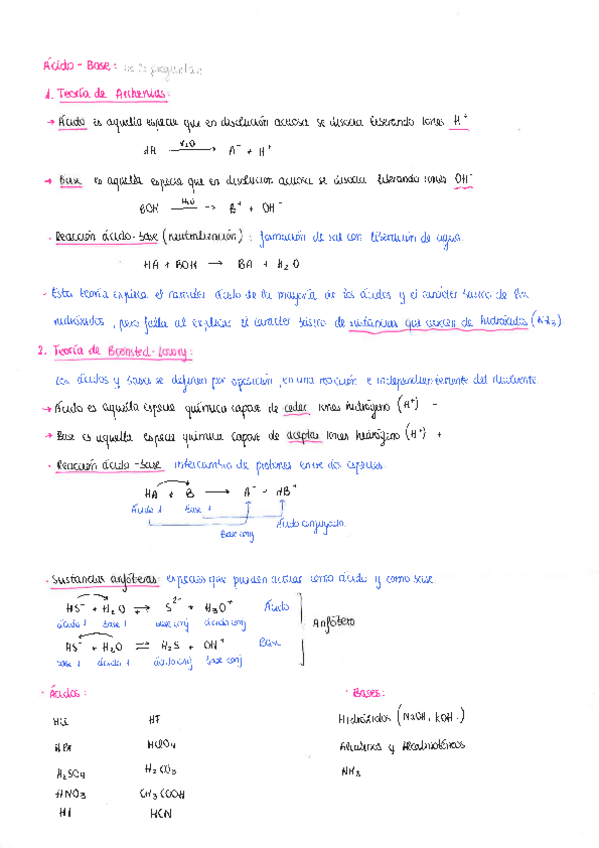 Ácido - Base:
1. Teoría de Arrhenius:
→ Ácido es aquella especie que en disolución acuosa se disocia liberando iones H⁺
AH —H₂O→ A⁻ + H⁺
→ Base es aquella especie que en disolución acuosa se disocia liberando iones OH⁻
BOH —H₂O→ B⁺ + OH⁻
· Reacción ácido-base (neutralización): formación de sal con liberación de agua.
HA + BOH → BA + H₂O
- Esta teoría explica el carácter ácido de la mayoría de los ácidos y el carácter básico de los
hidróxidos, pero falla al explicar el carácter básico de sustancias que carecen de hidróxidos (NH₃)
2. Teoría de Brönsted-Lowry:
Los ácidos y bases se definen por oposición, en una reacción e independientemente del disolvente.
→ Ácido es aquella especie química capaz de ceder iones hidrógeno (H⁺) -
→ Base es aquella especie química capaz de aceptar iones hidrógeno (H⁺) +
· Reacción ácido-base intercambio de protones entre dos especies.
HA + B → A⁻ - HB⁺
Ácido 1 Base 1
Ácido conjugado
Base conj
· Sustancias anfóteras: especies que pueden actuar como ácido y como base.
HS⁻ + H₂O ⇌ S²⁻ + H₃O⁺ Ácido
ácido 1 base 1 base conj ácido conj
Anfótero
HS⁻ + H₂O ⇌ H₂S + OH⁺ Base
base 1 ácido 1 ácido conj base conj
· Ácidos: · Bases:
HCl HF Hidróxidos (NaOH, KOH.)
HBr HClO₄ Alcalinos y Alcalinotérreos
H₂SO₄ H₂CO₃ NH₃
HNO₃ CH₃COOH
HI HCN